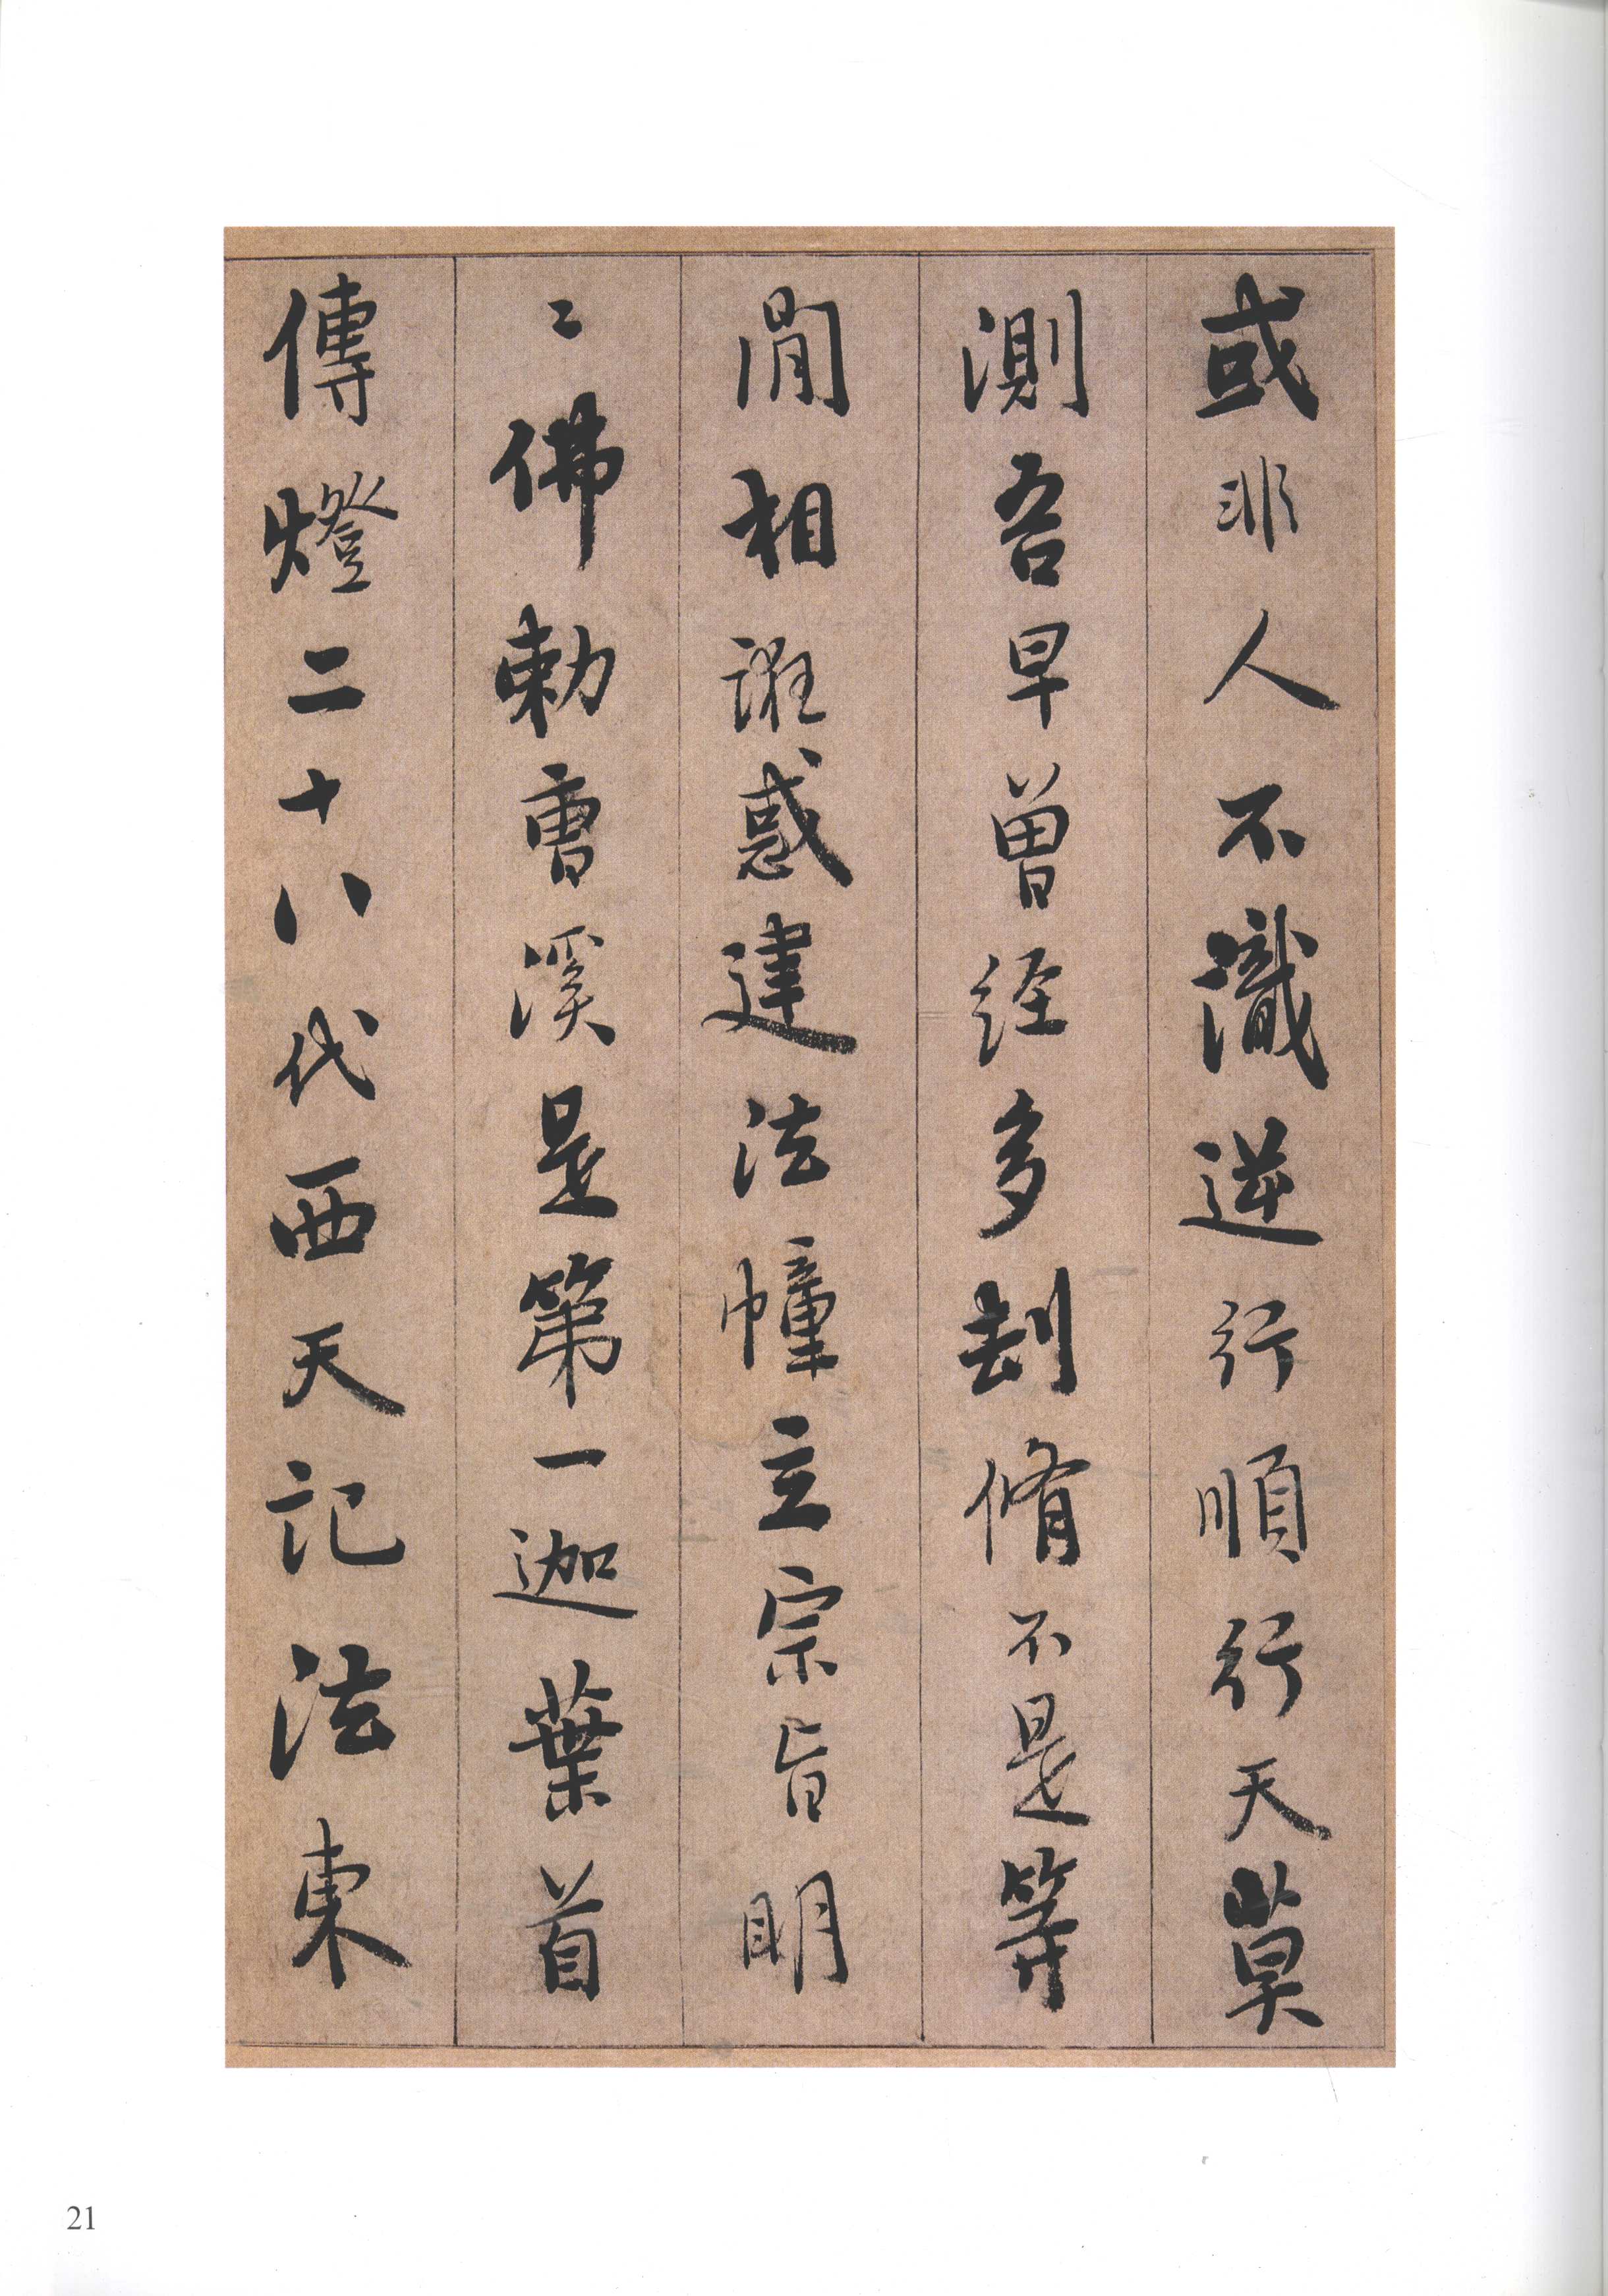 或非人不識逆行順行天莫
測吾早曾経多刧脩不是等
閒相誑惑建法幢立宗旨明
〻佛勅曹溪是第一迦葉首
傳燈二十八代西天記法東
21